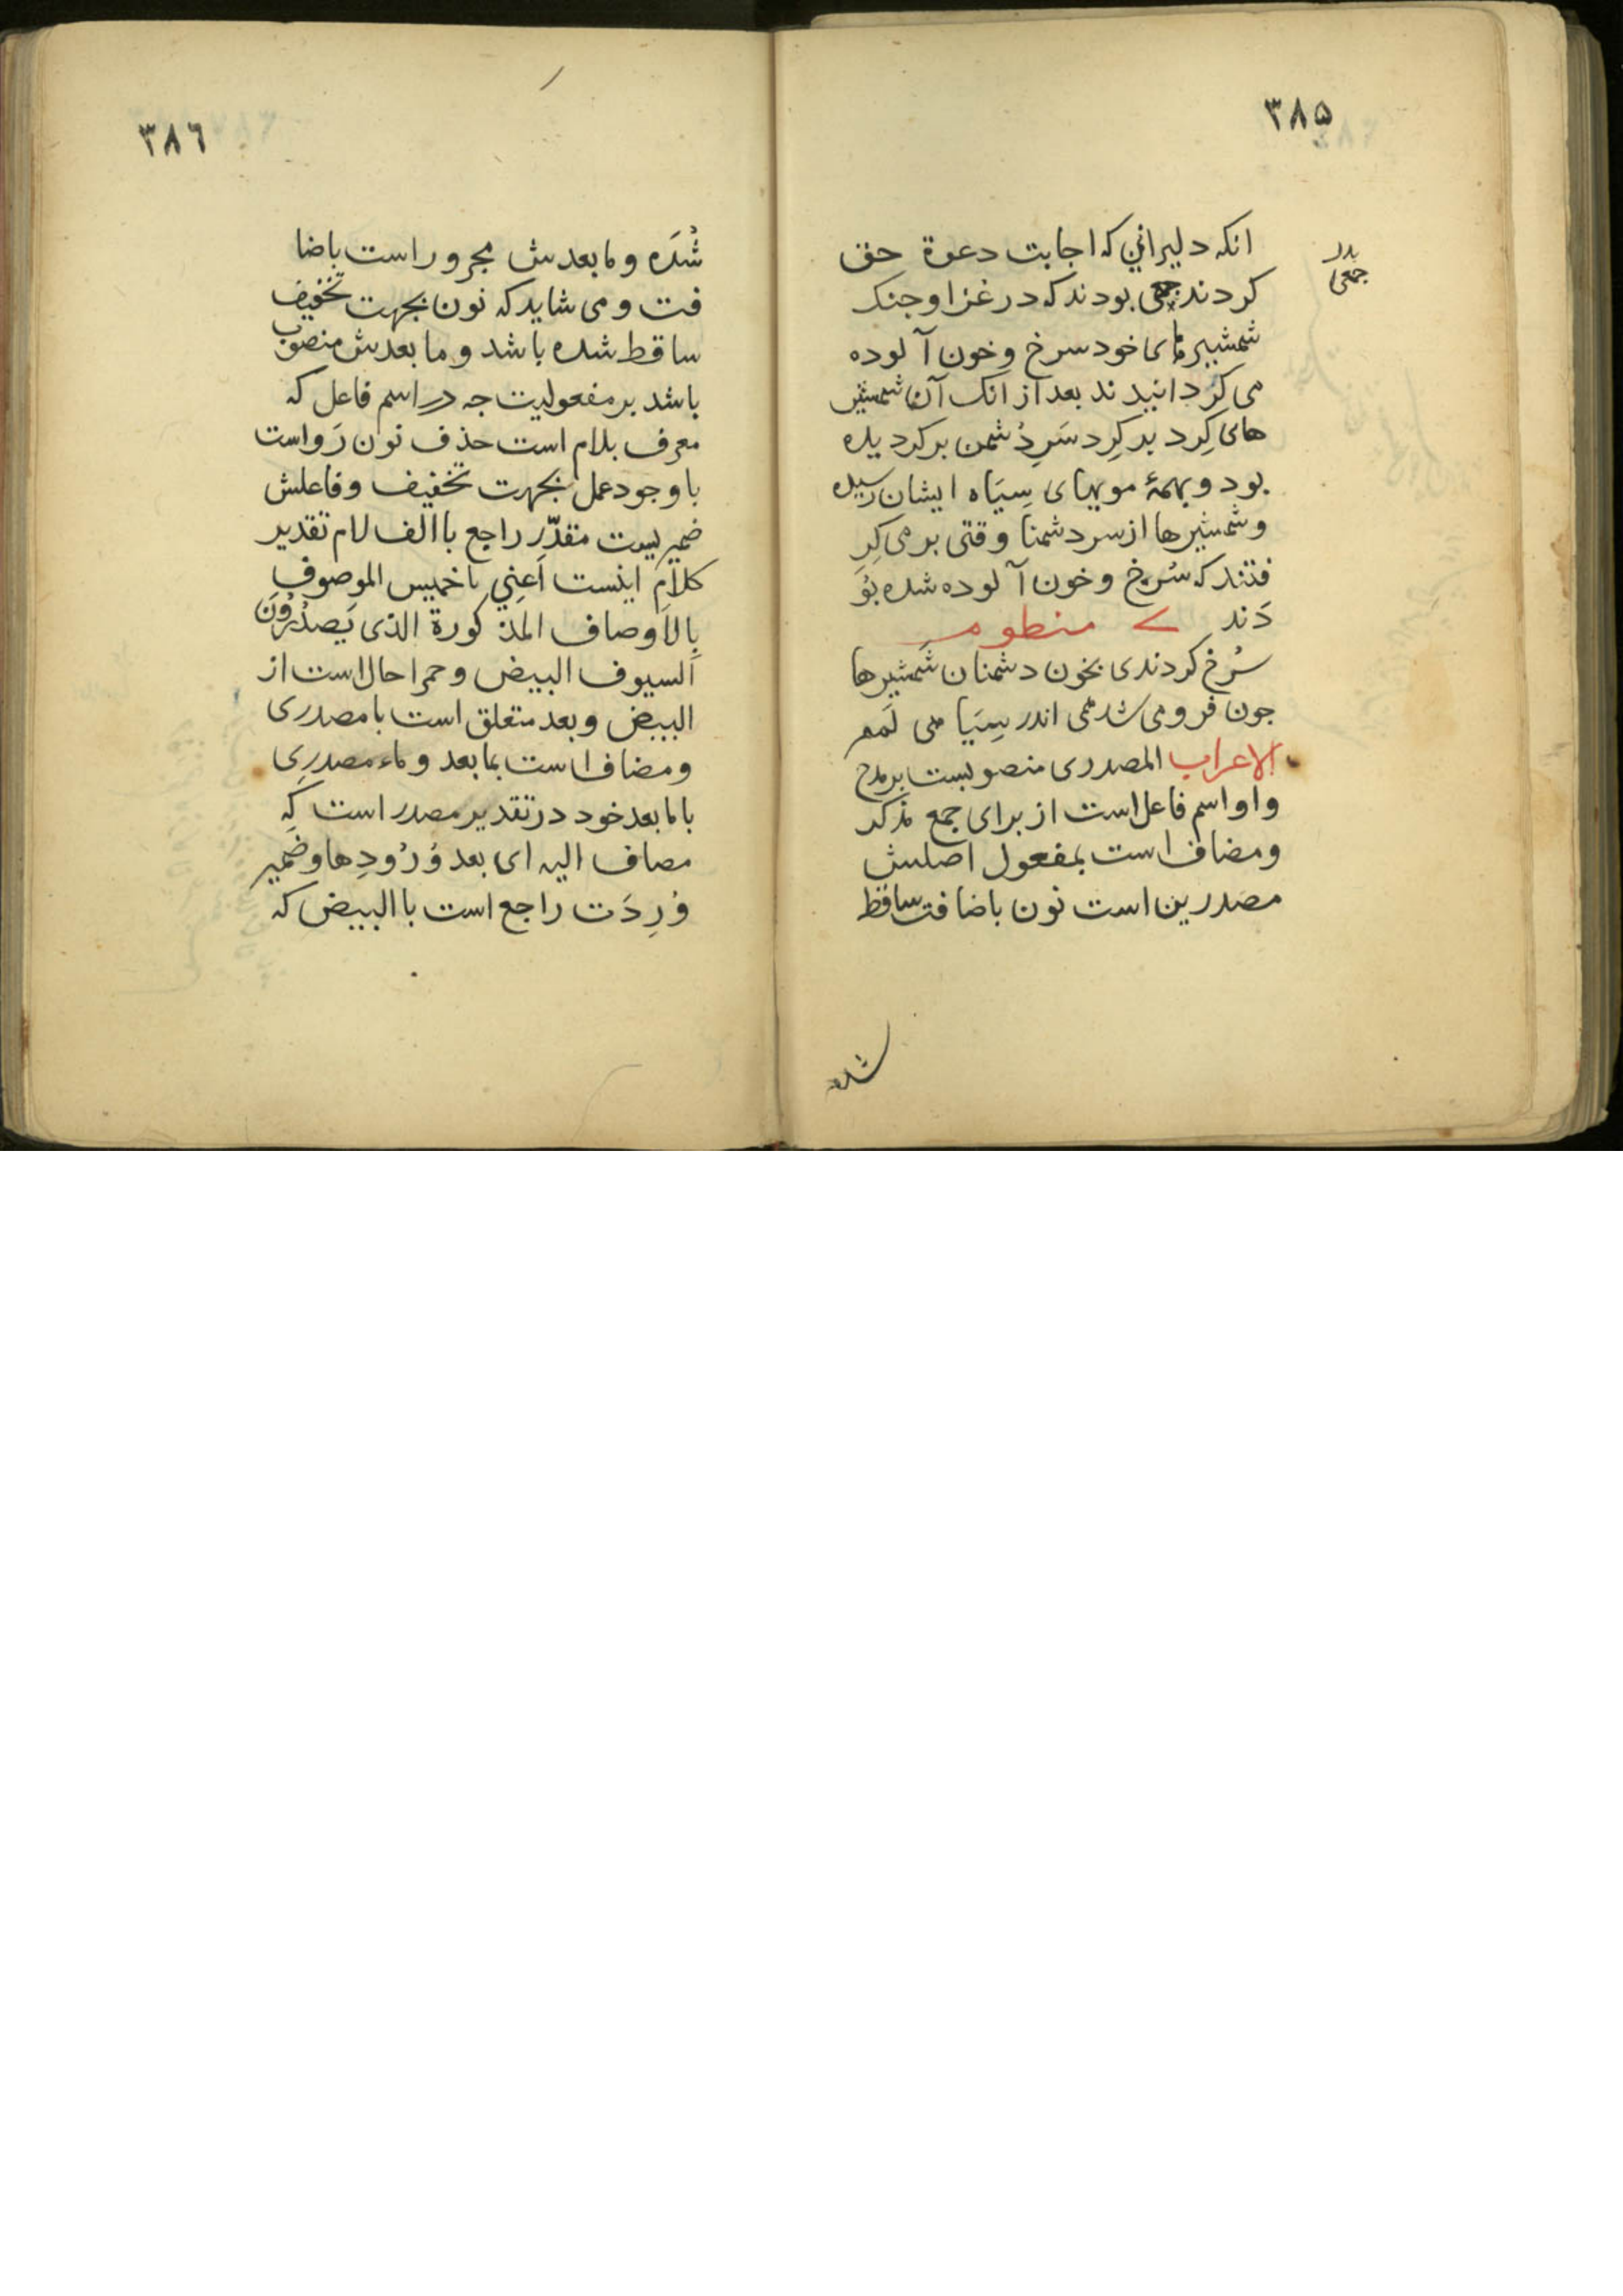 ٣٨۵
انکه دلیرانی که اجابت دعوة حق
کردند جمعی بودند که در غزا و جنک
شمشیرهای خود سرخ و خون آلوده
می کردانیدند بعد از انک آن شمشیر
های کرد بر کرد سَرِ دُشمن بر کردیده
بود و بهمهٔ مویهای سِیَاه ایشان رسیده
و شمشیرها از سر دشمنا وقتی بر می کِرِ
فتند که سُرخ و خون آلوده شده بُوَ
دَند منطوم
سُرخ کردندی بخون دشمنان شَمشیرها
جون فرو می شد همی اندر سِیَا هی لَمم
الاعراب المصدری منصوبست بر مدح
و او اسم فاعل است از برای جمع مذکر
و مضاف است بمفعول اصلش
مصدرین است نون باضافت ساقط
شده
جمعی
٣٨٦
شُدَه و مابعدش مجرور است باضا
فت و می شاید که نون بجهت تخفیف
ساقط شده باشد و ما بعدش منصوب
باشد بر مفعولیت جه در اسم فاعل که
معرف بلام است حذف نون رَواست
با وجود عمل بجهت تخفیف و فاعلش
ضمیریست مقدّر راجع با الف لام تقدیر
کلام اینست اَعنِي باخمیس الموصوف
بِالاَوصاف المذکورة الذی یَصدُرُونَ
السیوف البیض و حمرا حال است از
البیض و بعد متعلق است با مصدری
و مضاف است بما بعد و ماء مصدرِی
با ما بعد خود در تقدیر مصدر است کِه
مصاف الیه ای بعد وُرُودِها و ضمیر
وُرِدَت راجع است با البیض که